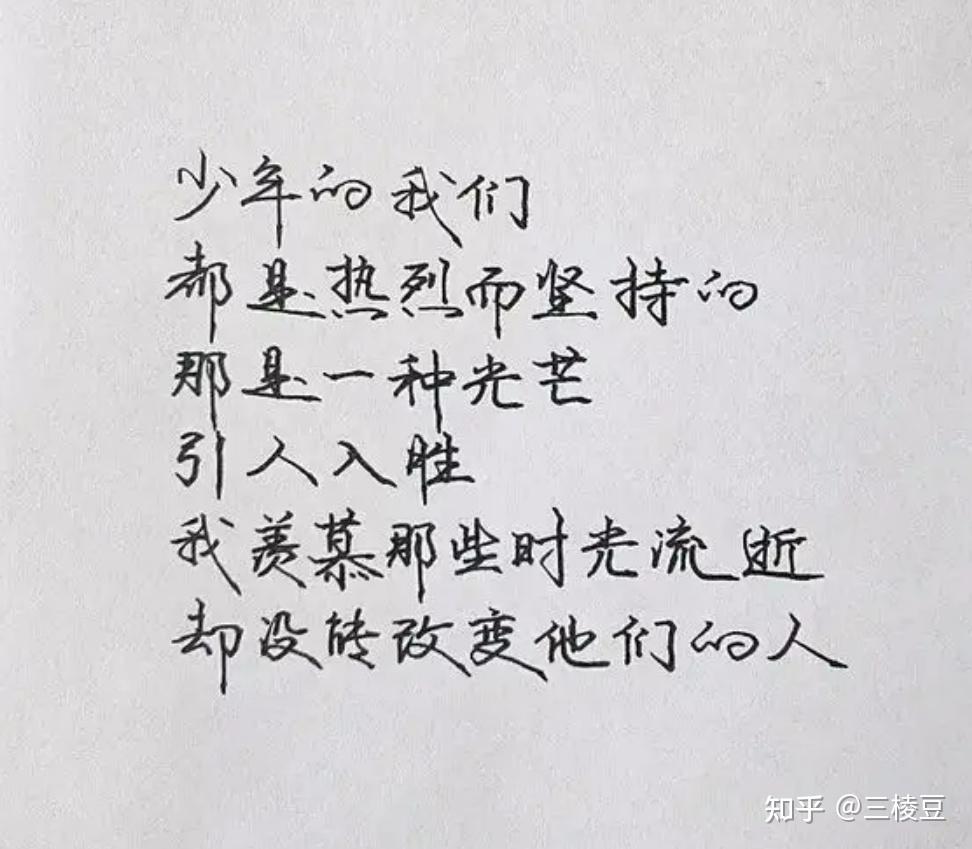 少年的我们
都是热烈而坚持的
那是一种光芒
引人入胜
我羡慕那些时光流逝
却没能改变他们的人
知乎 @三棱豆